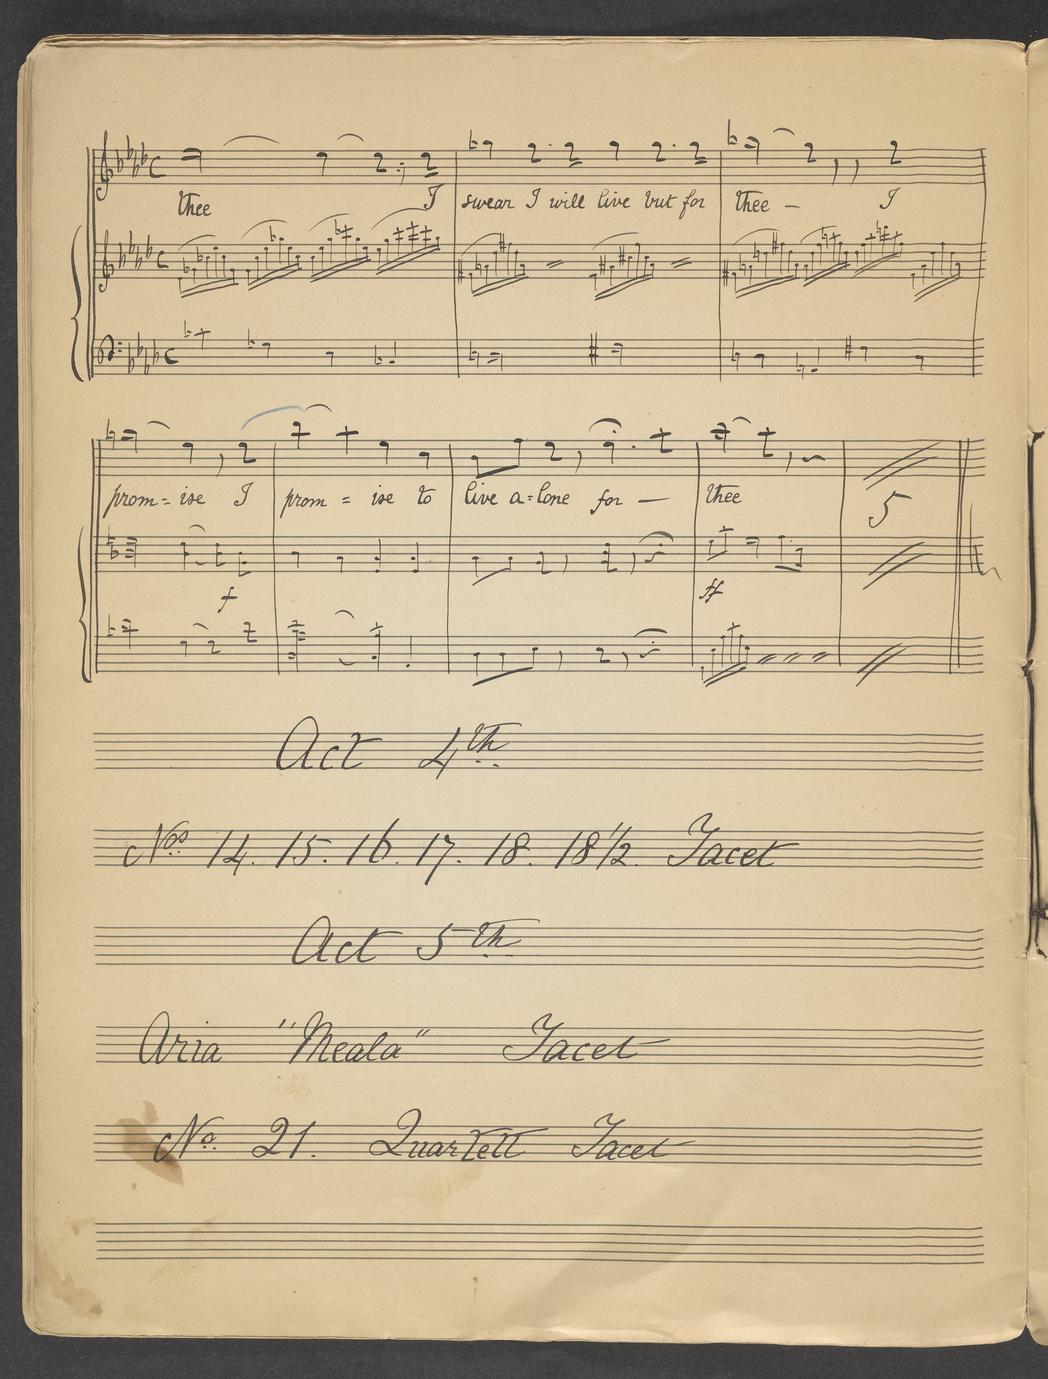 thee I swear I will live but for thee — I
prom = ise I prom = ise to live a = lone for — thee
5
f ff
Act 4th
Nos. 14. 15. 16. 17. 18. 18 1/2. Tacet
Act 5th
Aria "Meala" Tacet
No. 21. Quartett Tacet